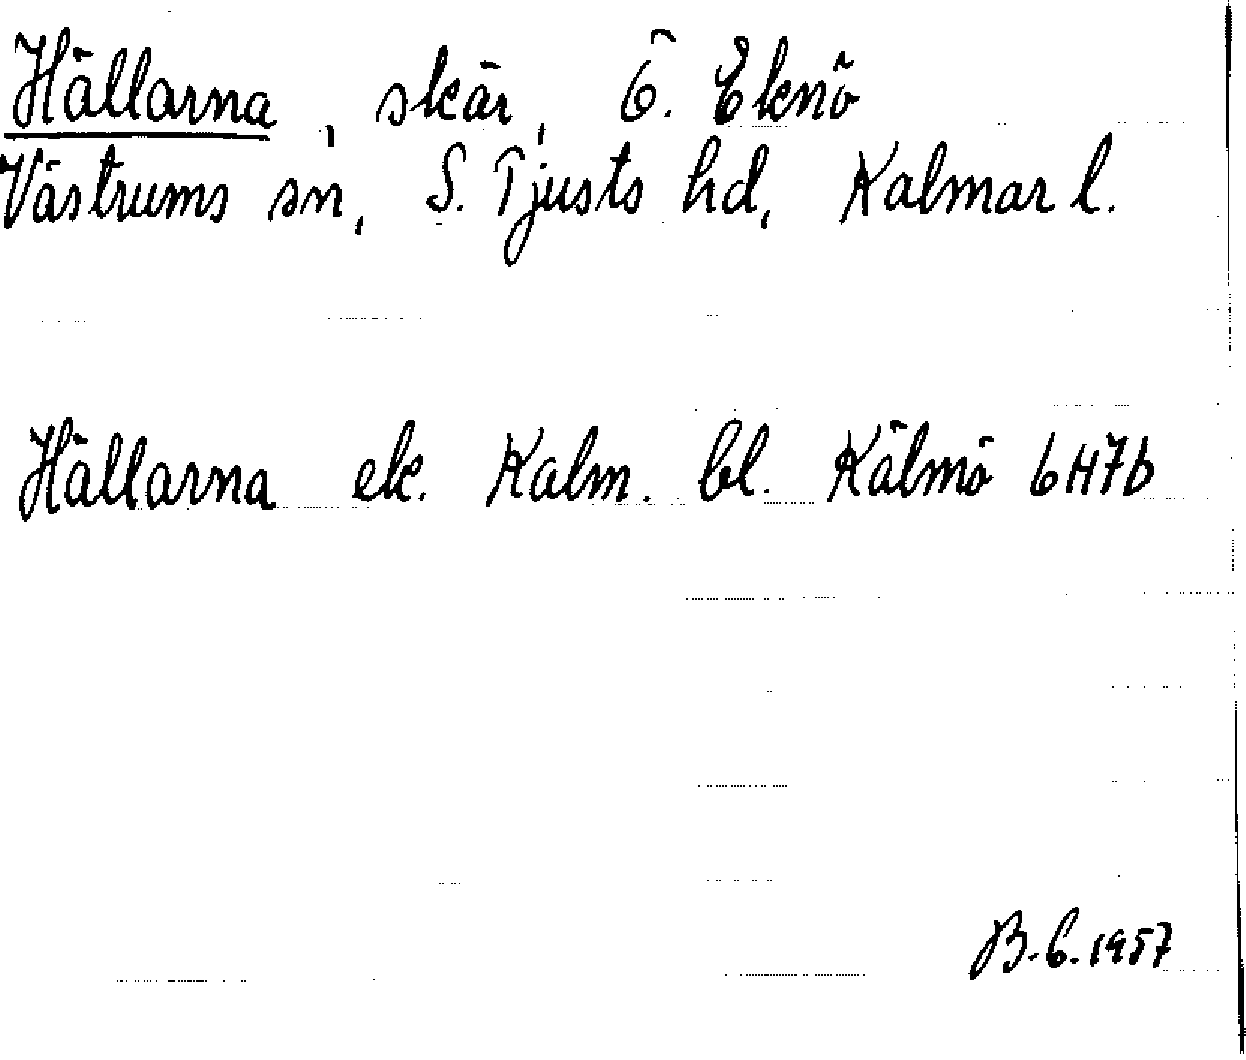 Hällarna, skär, Ö. Eknö
Västrums sn, S. Tjusts hd, Kalmar l.
Hällarna ek. Kalm. bl. Kälmö 6H7b
B.G. 1957